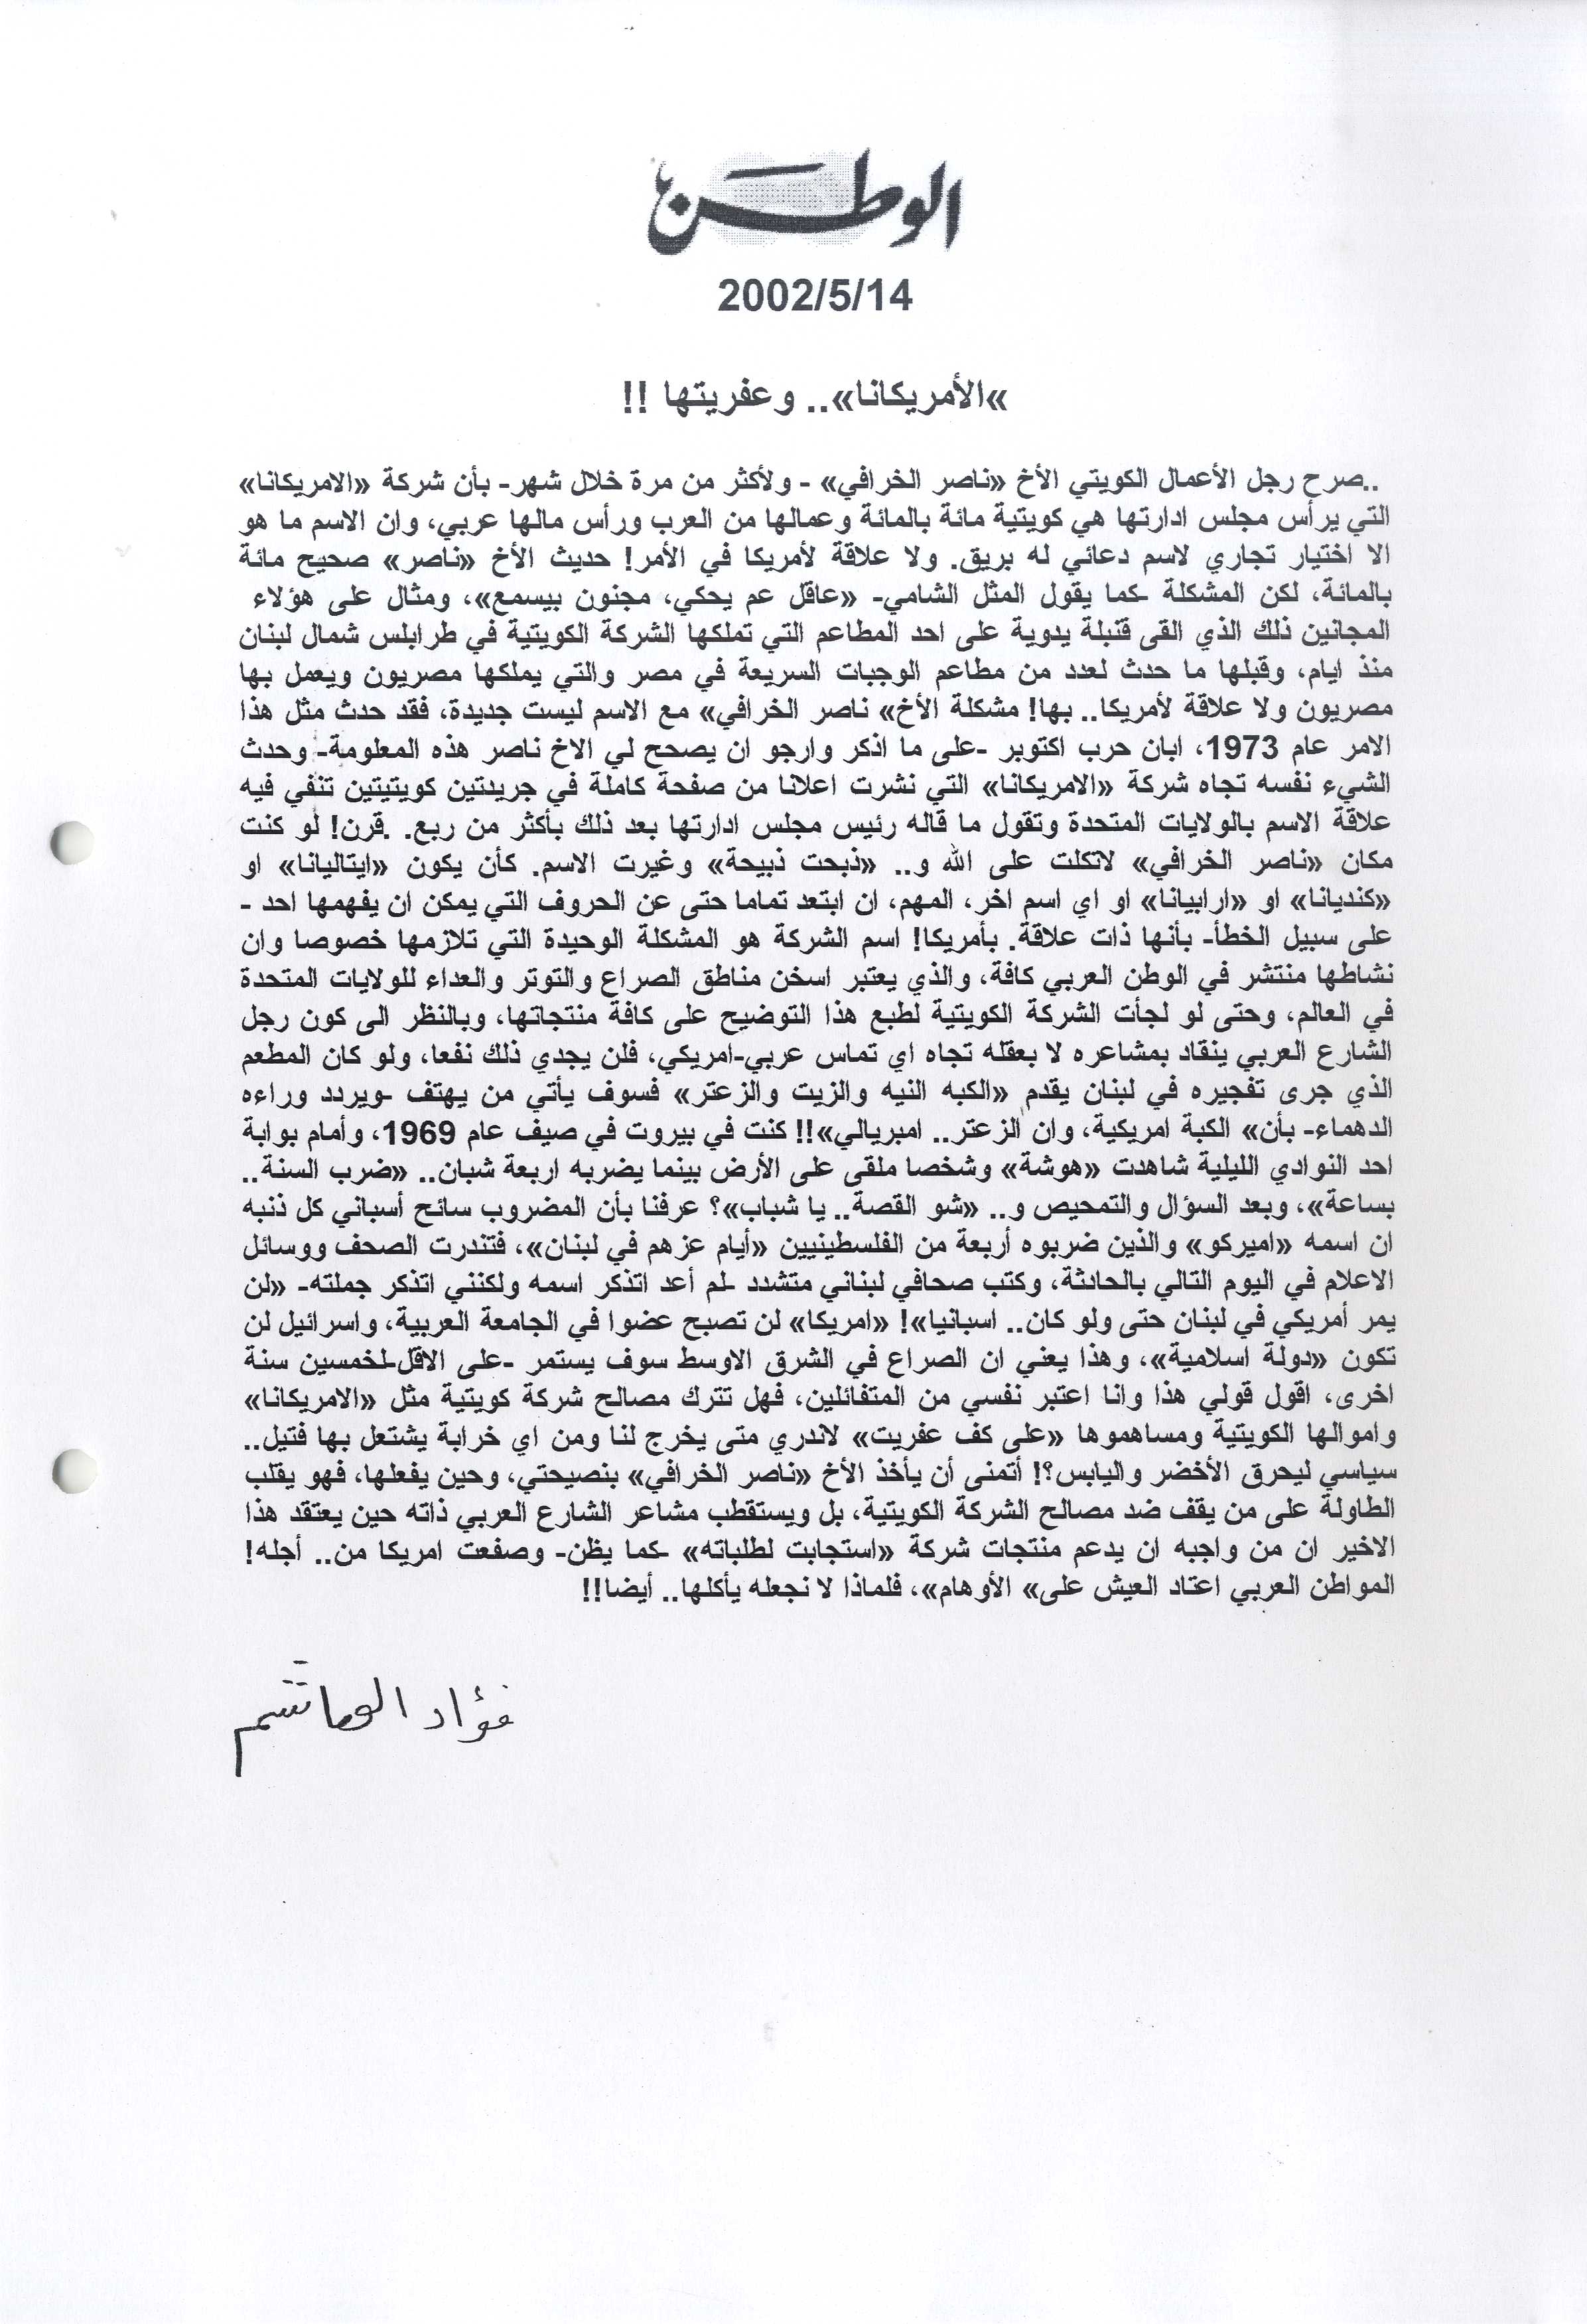 الوطن
2002/5/14
»الأمريكانا».. وعفريتها !!
..صرح رجل الأعمال الكويتي الأخ «ناصر الخرافي» - ولأكثر من مرة خلال شهر- بأن شركة «الامريكانا»
التي يرأس مجلس ادارتها هي كويتية مائة بالمائة وعمالها من العرب ورأس مالها عربي، وان الاسم ما هو
الا اختيار تجاري لاسم دعائي له بريق. ولا علاقة لأمريكا في الأمر! حديث الأخ «ناصر» صحيح مائة
بالمائة، لكن المشكلة -كما يقول المثل الشامي- «عاقل عم يحكي، مجنون بيسمع»، ومثال على هؤلاء
المجانين ذلك الذي القى قنبلة يدوية على احد المطاعم التي تملكها الشركة الكويتية في طرابلس شمال لبنان
منذ ايام، وقبلها ما حدث لعدد من مطاعم الوجبات السريعة في مصر والتي يملكها مصريون ويعمل بها
مصريون ولا علاقة لأمريكا.. بها! مشكلة الأخ» ناصر الخرافي» مع الاسم ليست جديدة، فقد حدث مثل هذا
الامر عام 1973، ابان حرب اكتوبر -على ما اذكر وارجو ان يصحح لي الاخ ناصر هذه المعلومة- وحدث
الشيء نفسه تجاه شركة «الامريكانا» التي نشرت اعلانا من صفحة كاملة في جريدتين كويتيتين تنفي فيه
علاقة الاسم بالولايات المتحدة وتقول ما قاله رئيس مجلس ادارتها بعد ذلك بأكثر من ربع. .قرن! لو كنت
مكان «ناصر الخرافي» لاتكلت على الله و.. «ذبحت ذبيحة» وغيرت الاسم. كأن يكون «ايتاليانا» او
«كنديانا» او «ارابيانا» او اي اسم اخر، المهم، ان ابتعد تماما حتى عن الحروف التي يمكن ان يفهمها احد -
على سبيل الخطأ- بأنها ذات علاقة. بأمريكا! اسم الشركة هو المشكلة الوحيدة التي تلازمها خصوصا وان
نشاطها منتشر في الوطن العربي كافة، والذي يعتبر اسخن مناطق الصراع والتوتر والعداء للولايات المتحدة
في العالم، وحتى لو لجأت الشركة الكويتية لطبع هذا التوضيح على كافة منتجاتها، وبالنظر الى كون رجل
الشارع العربي ينقاد بمشاعره لا بعقله تجاه اي تماس عربي-امريكي، فلن يجدي ذلك نفعا، ولو كان المطعم
الذي جرى تفجيره في لبنان يقدم «الكبه النيه والزيت والزعتر» فسوف يأتي من يهتف -ويردد وراءه
الدهماء- بأن» الكبة امريكية، وان الزعتر.. امبريالي»!! كنت في بيروت في صيف عام 1969، وأمام بوابة
احد النوادي الليلية شاهدت «هوشة» وشخصا ملقى على الأرض بينما يضربه اربعة شبان.. «ضرب السنة..
بساعة»، وبعد السؤال والتمحيص و.. «شو القصة.. يا شباب»؟ عرفنا بأن المضروب سائح أسباني كل ذنبه
ان اسمه «اميركو» والذين ضربوه أربعة من الفلسطينيين «أيام عزهم في لبنان»، فتندرت الصحف ووسائل
الاعلام في اليوم التالي بالحادثة، وكتب صحافي لبناني متشدد -لم أعد اتذكر اسمه ولكنني اتذكر جملته- «لن
يمر أمريكي في لبنان حتى ولو كان.. اسبانيا»! «امريكا» لن تصبح عضوا في الجامعة العربية، واسرائيل لن
تكون «دولة اسلامية»، وهذا يعني ان الصراع في الشرق الاوسط سوف يستمر -على الاقل-لخمسين سنة
اخرى، اقول قولي هذا وانا اعتبر نفسي من المتفائلين، فهل تترك مصالح شركة كويتية مثل «الامريكانا»
واموالها الكويتية ومساهموها «على كف عفريت» لاندري متى يخرج لنا ومن اي خرابة يشتعل بها فتيل..
سياسي ليحرق الأخضر واليابس؟! أتمنى أن يأخذ الأخ «ناصر الخرافي» بنصيحتي، وحين يفعلها، فهو يقلب
الطاولة على من يقف ضد مصالح الشركة الكويتية، بل ويستقطب مشاعر الشارع العربي ذاته حين يعتقد هذا
الاخير ان من واجبه ان يدعم منتجات شركة «استجابت لطلباته» -كما يظن- وصفعت امريكا من.. أجله!
المواطن العربي اعتاد العيش على» الأوهام»، فلماذا لا نجعله يأكلها.. أيضا!!
فؤاد الهاشم